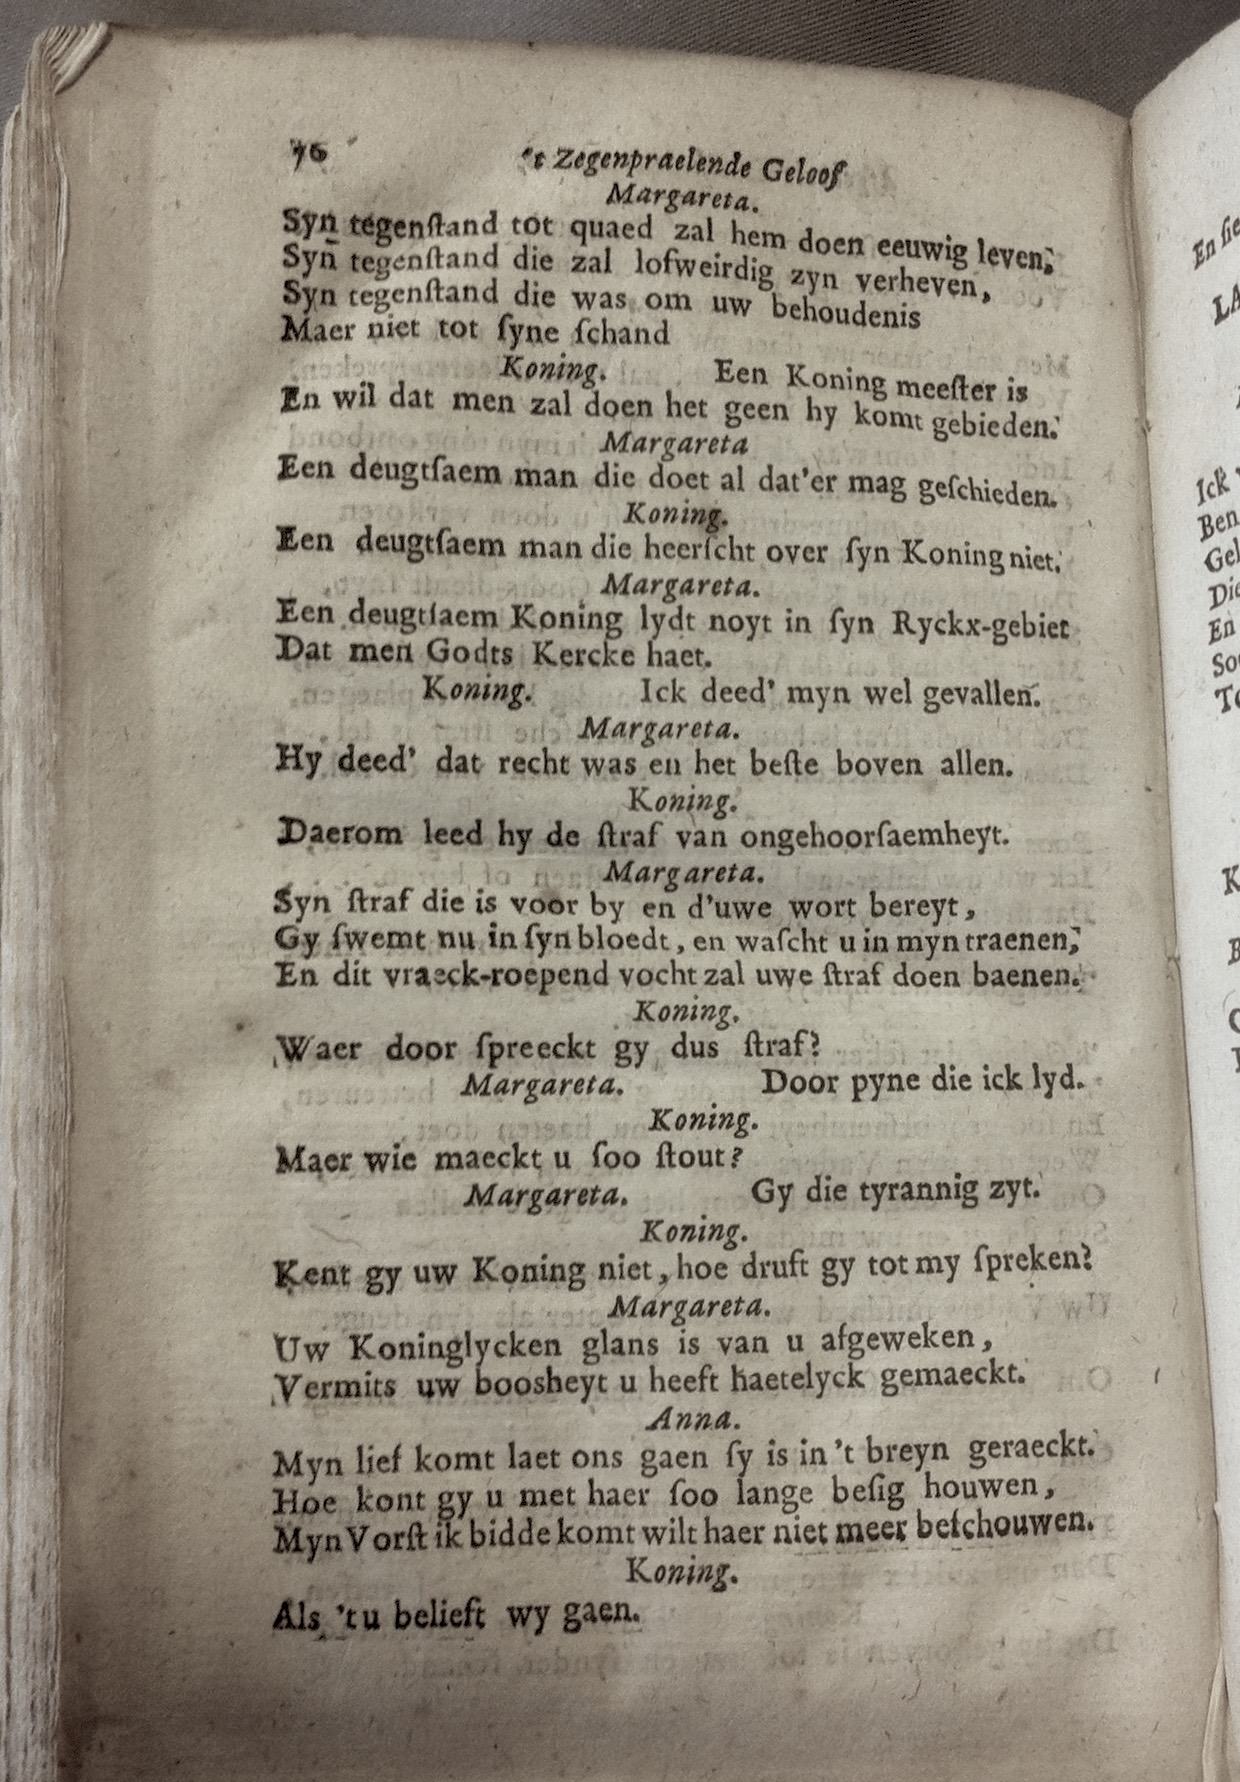 76 't Zegenpraelende Geloof
Margareta.
Syn tegenſtand tot quaed zal hem doen eeuwig leven;
Syn tegenſtand die zal lofweirdig zyn verheven,
Syn tegenſtand die was om uw behoudenis
Maer niet tot ſyne ſchand
Koning. Een Koning meeſter is
En wil dat men zal doen het geen hy komt gebieden.
Margareta
Een deugtſaem man die doet al dat'er mag geſchieden.
Koning.
Een deugtſaem man die heerſcht over ſyn Koning niet.
Margareta.
Een deugtſaem Koning lydt noyt in ſyn Ryckx-gebiet
Dat men Godts Kercke haet.
Koning. Ick deed' myn wel gevallen.
Margareta.
Hy deed' dat recht was en het beſte boven allen.
Koning.
Daerom leed hy de ſtraf van ongehoorſaemheyt.
Margareta.
Syn ſtraf die is voor by en d'uwe wort bereyt,
Gy ſwemt nu in ſyn bloedt, en waſcht u in myn traenen,
En dit vraeck-roepend vocht zal uwe ſtraf doen baenen.
Koning.
Waer door ſpreeckt gy dus ſtraf?
Margareta. Door pyne die ick lyd.
Koning.
Maer wie maeckt u ſoo ſtout?
Margareta. Gy die tyrannig zyt.
Koning.
Kent gy uw Koning niet, hoe druft gy tot my ſpreken?
Margareta.
Uw Koninglycken glans is van u afgeweken,
Vermits uw boosheyt u heeft haetelyck gemaeckt.
Anna.
Myn lief komt laet ons gaen ſy is in 't breyn geraeckt.
Hoe kont gy u met haer ſoo lange beſig houwen,
Myn Vorſt ik bidde komt wilt haer niet meer beſchouwen.
Koning.
Als 't u belieft wy gaen.
En
LA
Ick
Ben
Gel
Die
En
Soo